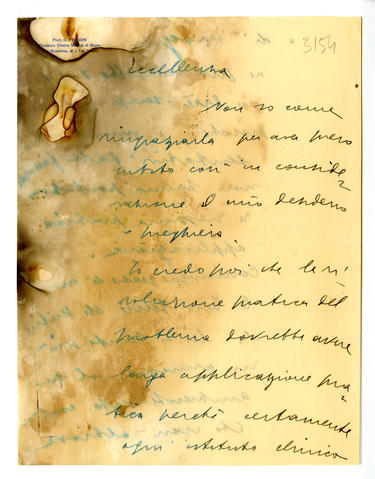 Prof. C. FRUGONI
Direttore Clinica Medica di Roma
3154
Eccellenza
Non so come
ringraziarla per aver preso
subito così in conside=
razione il mio desiderio
e preghiera
Io credo poi che la ri
soluzione pratica del
problema dovrebbe avere
larga applicazione pra=
tica perchè certamente
ogni istituto clinico